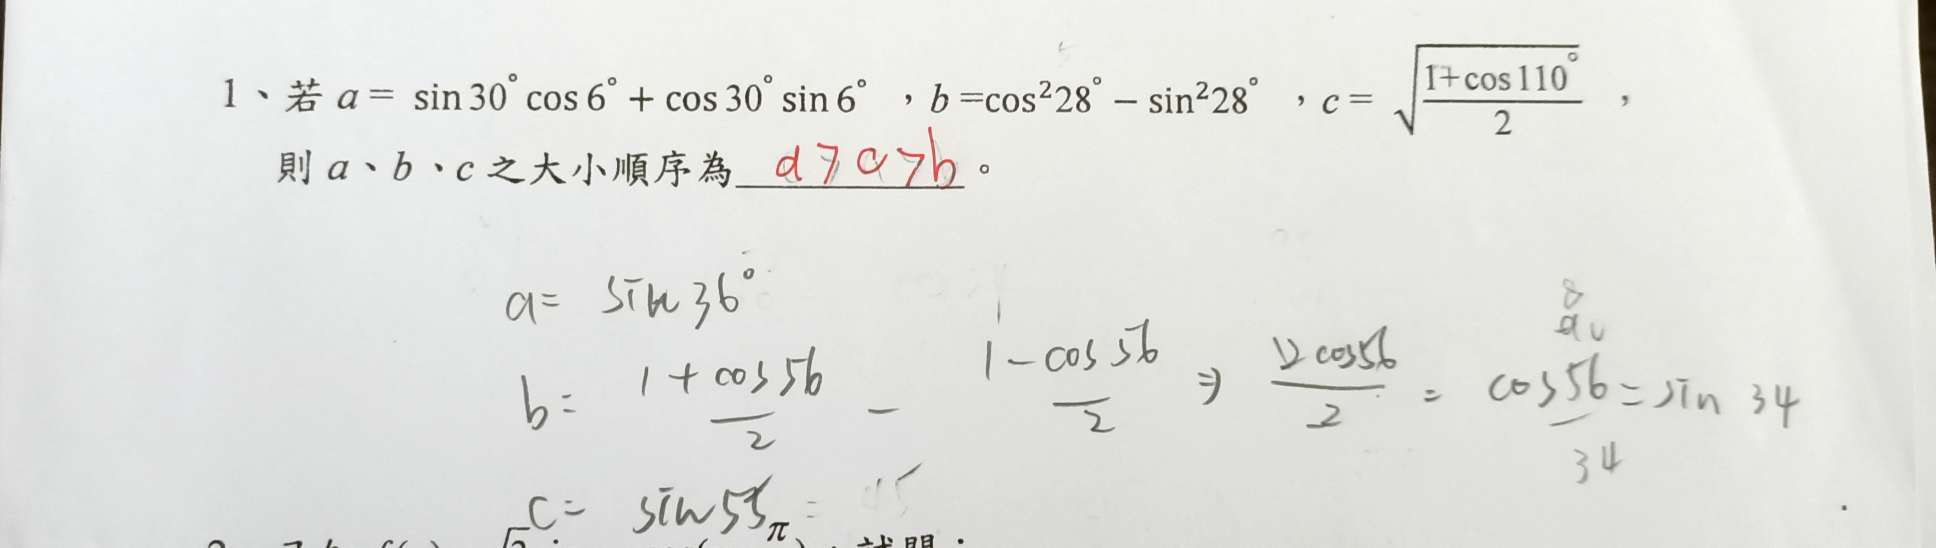 1、若 a = sin 30° cos 6° + cos 30° sin 6° ，b =cos²28° − sin²28° ，c = √((1+cos 110°)/2) ，
則 a、b、c 之大小順序為 a > c > b 。
a = sin 36°
b = (1 + cos 56)/2 − (1 − cos 56)/2 ⇒ (2 cos 56)/2 = cos 56 = sin 34
34
c = sin 55